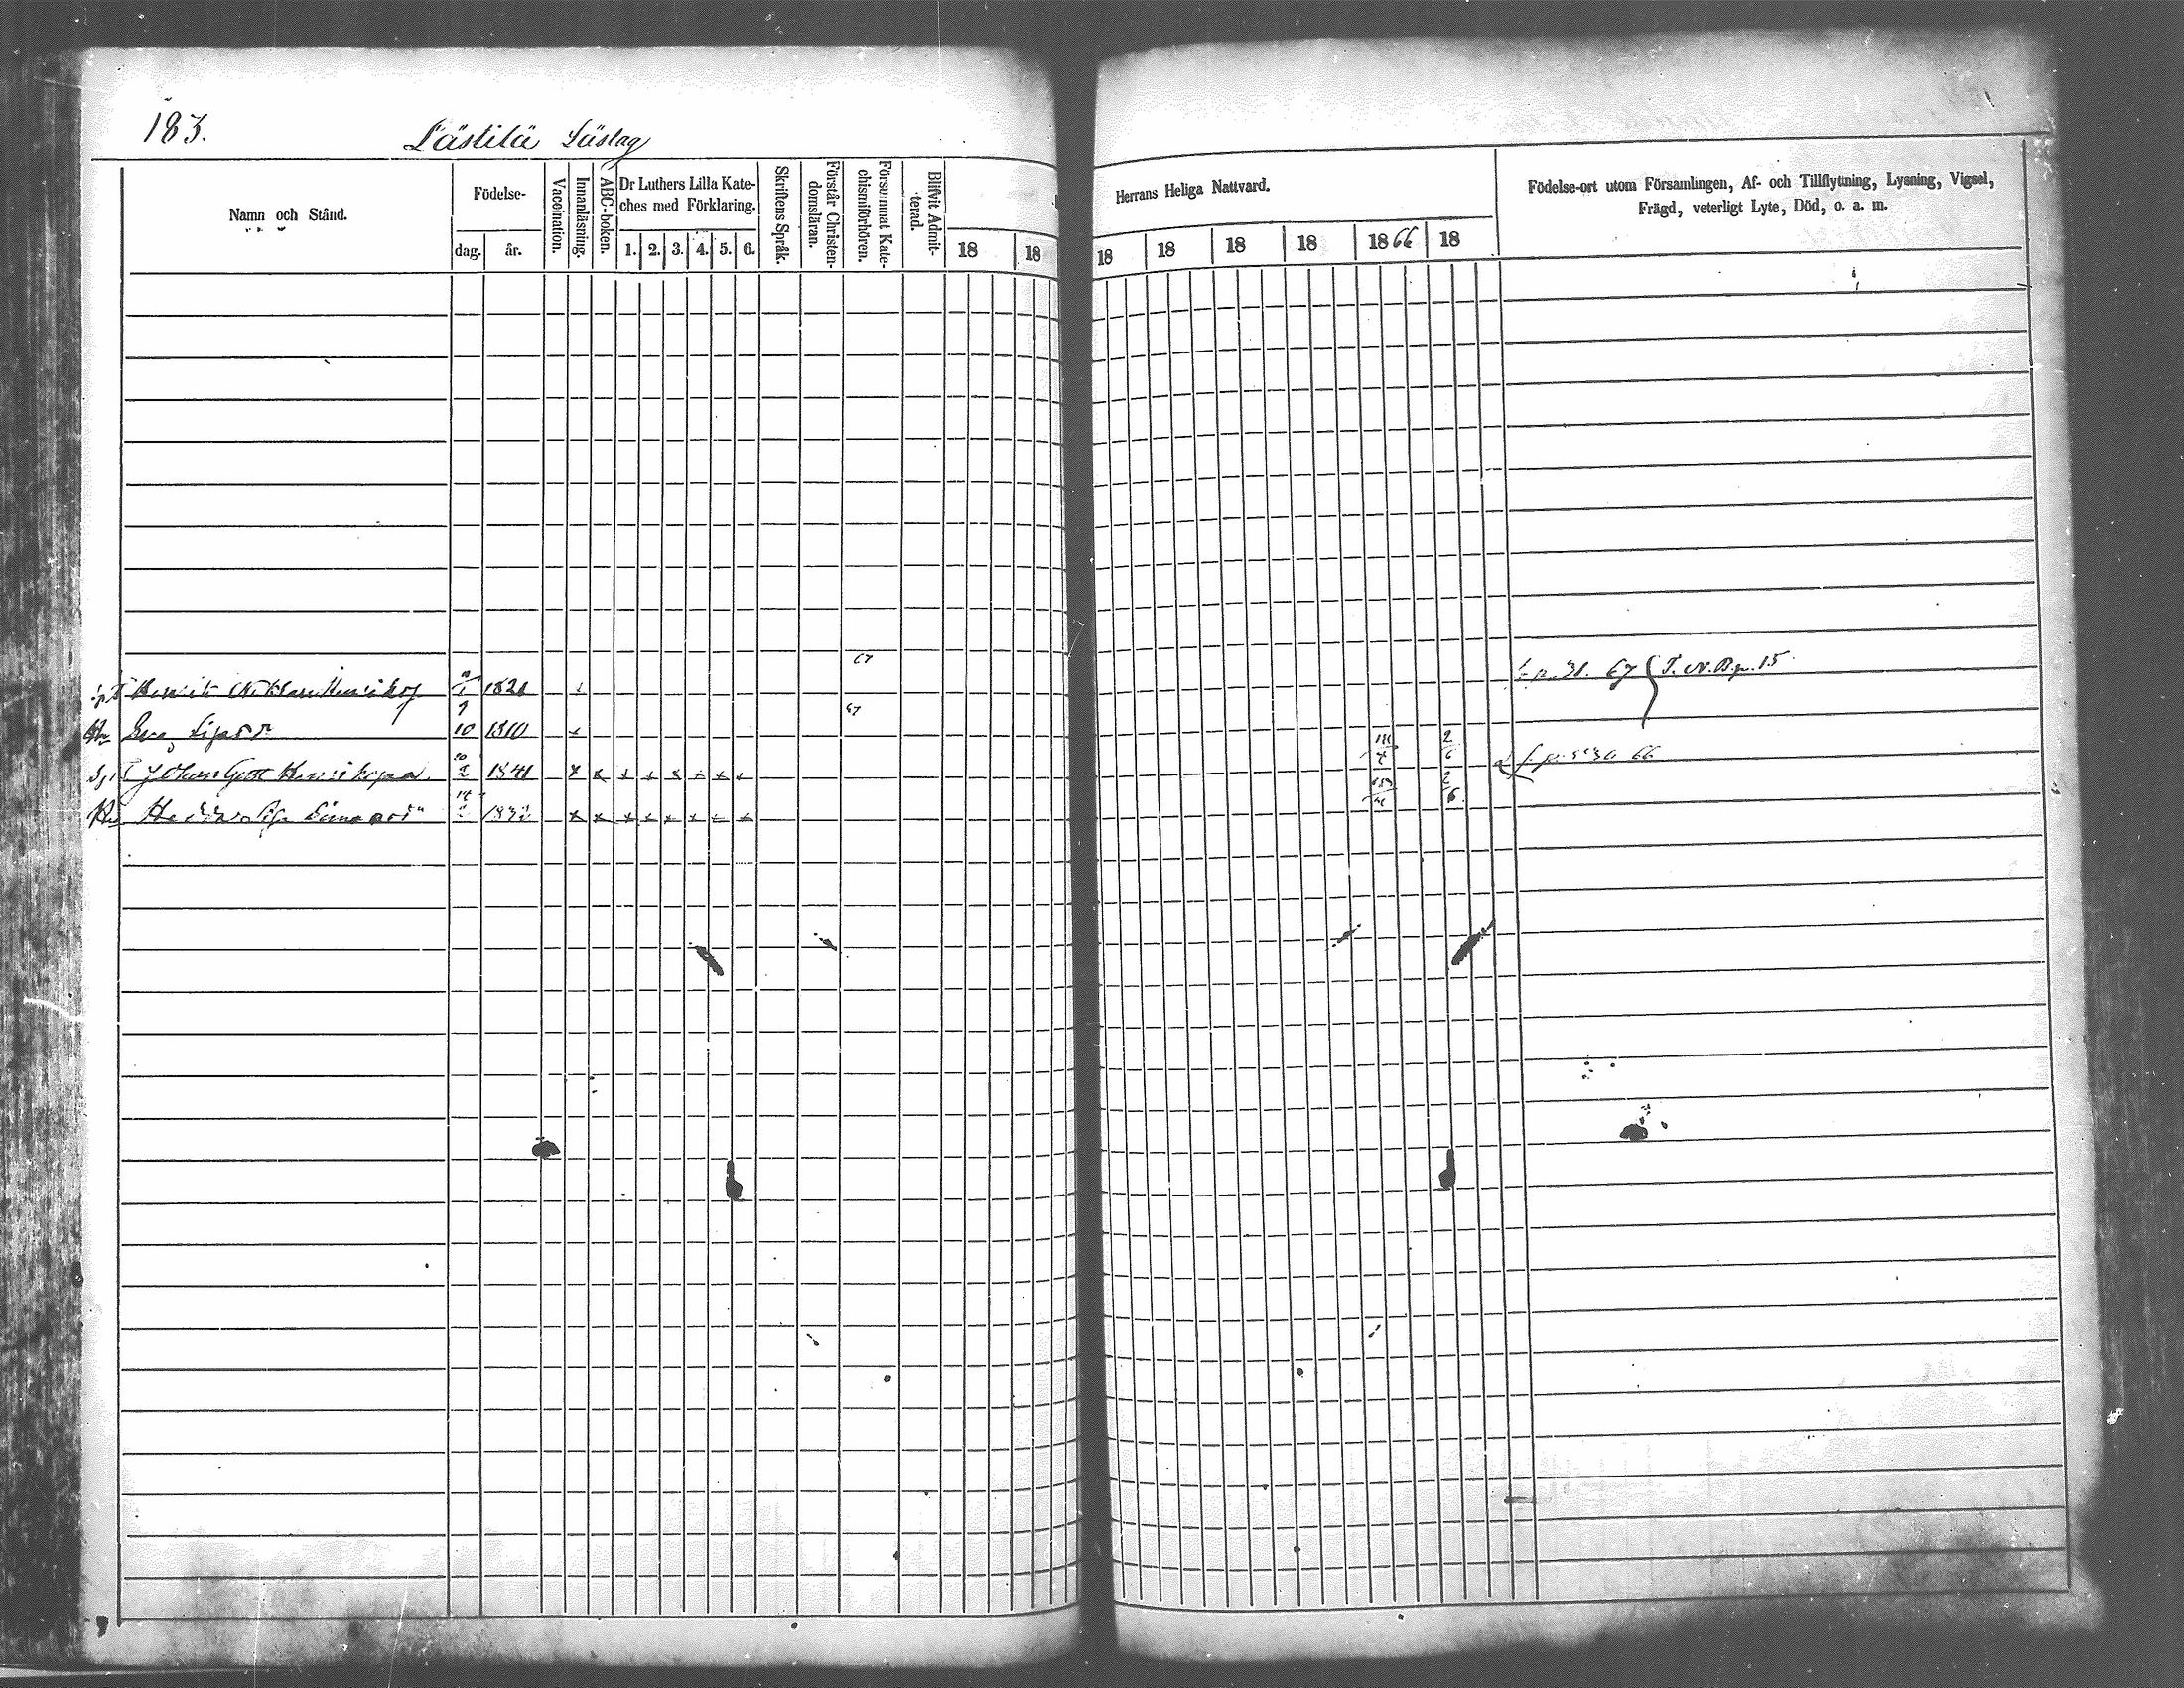 183.
Lästilä Läslag
Namn och Stånd.
Födelse-
dag.
år.
Vaccination.
Innanläsning.
ABC-boken.
Dr Luthers Lilla Kate-
ches med Förklaring.
1. 2. 3. 4. 5. 6.
Skriftens Språk.
Förstår Christen-
domsläran.
Försummat Kate-
chismiförhören.
Blifvit Admit-
terad.
18 18
Herrans Heliga Nattvard.
18 18 18 18 1866 18
Födelse-ort utom Församlingen, Af- och Tillflyttning, Lysning, Vigsel,
Frägd, veterligt Lyte, Död, o. a. m.
67
Henrik Niklas Henriksson 1821 67 T. N. B. p. 15
67
Eva 10 1810
Johan Gust. Henriksson 2 1841 x x x x x x x x 2/6 66
Hedda 14 x x x x x x x x 2/6